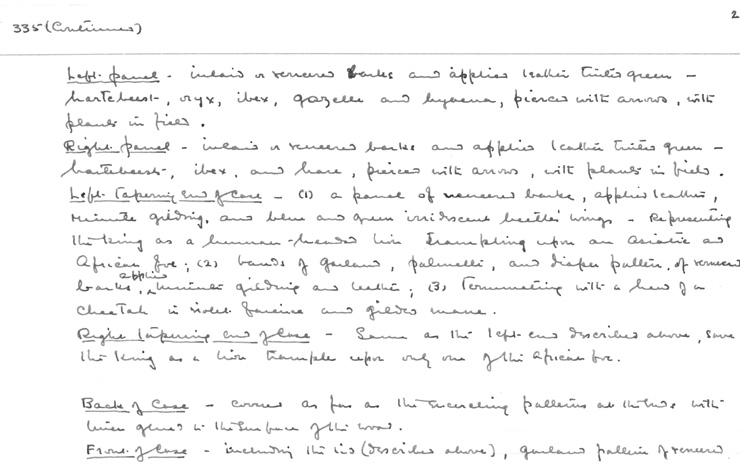 2
335 (Continued)
Left panel - inlaid or veneered barks and applied leather tinted green -
hartebeest, oryx, ibex, gazelle and hyaena, pierced with arrows, with
plants in field.
Right panel - inlaid or veneered barks and applied leather tinted green -
hartebeest, ibex, and hare, pierced with arrows, with plants in field.
Left tapering end of case - (1) a panel of veneered barks, applied leather,
minute gilding, and blue and green irridescent beetles' wings - Representing
the king as a human-headed lion trampling upon an Asiatic and
African foe; (2) bands of garland, palmette, and diaper pattern, of veneered
applied
barks, minute gilding and leather; (3) Terminating with a head of a
cheetah in violet faience and gilded mane.
Right tapering end of case - Same as the left end described above, save
the king as a lion tramples upon only one of the African foe.
Back of case - covered as far as the encircling patterns at the ends with
linen glued to the surface of the wood.
Front of case - including the lid (described above), garland pattern of veneered